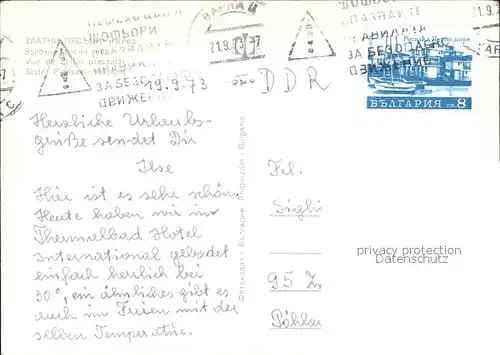 ПЕШЕХОДЦИ
ШОФЬОРИ
СПАЗВАЙТЕ
ПРАВИЛАТА
ЗА БЕЗОПАСНО
ДВИЖЕНИЕ
ВАРНА Ц
21.9.73-7
ШОФЬОРИ
СПАЗВАЙТЕ
ПРАВИЛАТА
ЗА БЕЗОПАСНО
ДВИЖЕНИЕ
21.9.7
ЗЛАТНИ ПЯСЪЦИ
Vue de Zlatni piassatzi
БЪЛГАРИЯ 8
19.9.73
DDR
Herzliche Urlaubs-
grüße sendet Dir
Ilse
Hier ist es sehr schön.
Heute haben wir im
Thermalbad Hotel
International gebadet
einfach herrlich bei
30°, ein ähnliches gibt es
auch im Freien mit der
selben Temperatur.
Фотоиздат - България Photoizdat - Bulgaria
Frl.
Sighi
95 Zw
Pöhlau
privacy protection
Datenschutz